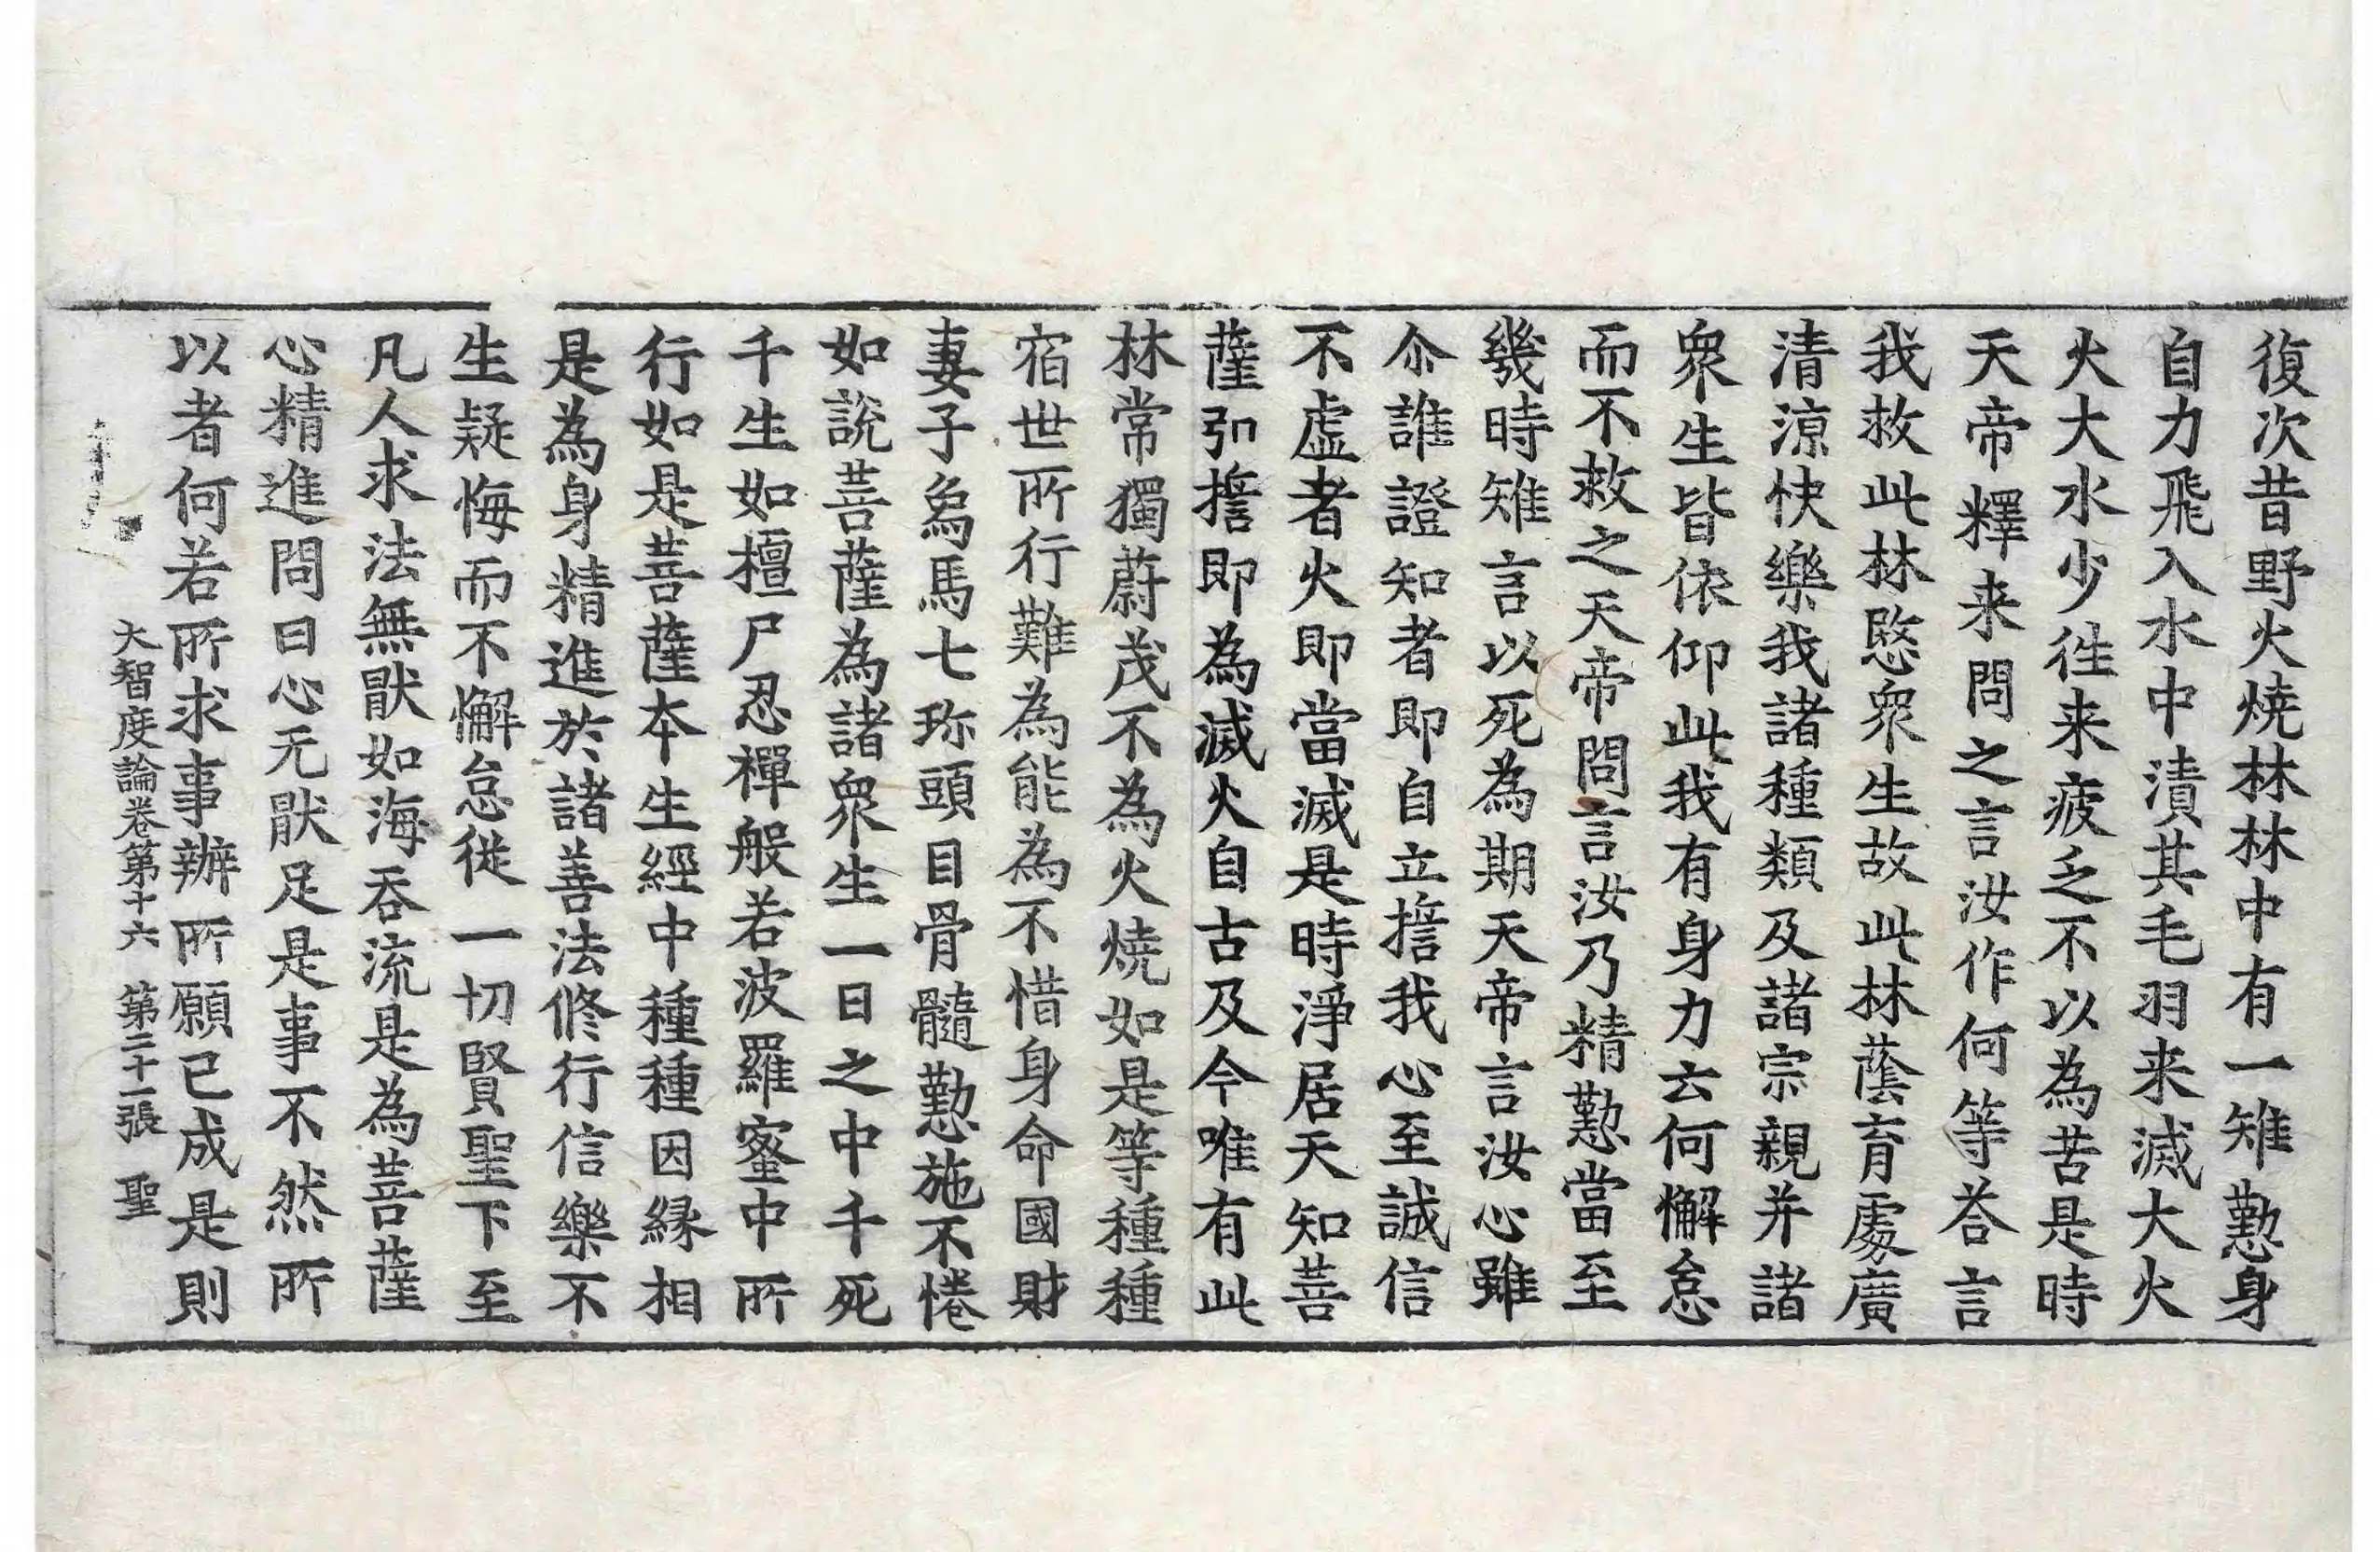 復次昔野火燒林林中有一雉懃身
自力飛入水中漬其毛羽来滅大火
火大水少徃来疲乏不以為苦是時
天帝釋来問之言汝作何等荅言
我救此林愍衆生故此林蔭育處廣
清涼快樂我諸種類及諸宗親并諸
衆生皆依仰此我有身力云何懈怠
而不救之天帝問言汝乃精懃當至
幾時雉言以死為期天帝言汝心雖
尒誰證知者即自立擔我心至誠信
不虛者火即當滅是時淨居天知菩
薩弘擔即為滅火自古及今唯有此
林常獨蔚茂不為火燒如是等種種
宿世所行難為能為不惜身命國財
妻子象馬七珎頭目骨髓懃施不惓
如說菩薩為諸衆生一日之中千死
千生如檀尸忍禪般若波羅蜜中所
行如是菩薩本生經中種種因緣相
是為身精進於諸善法修行信樂不
生疑悔而不懈怠從一切賢聖下至
凡人求法無猒如海吞流是為菩薩
心精進問曰心无猒足是事不然所
以者何若所求事辦所願已成是則
大智度論卷第十六 第二十一張 聖